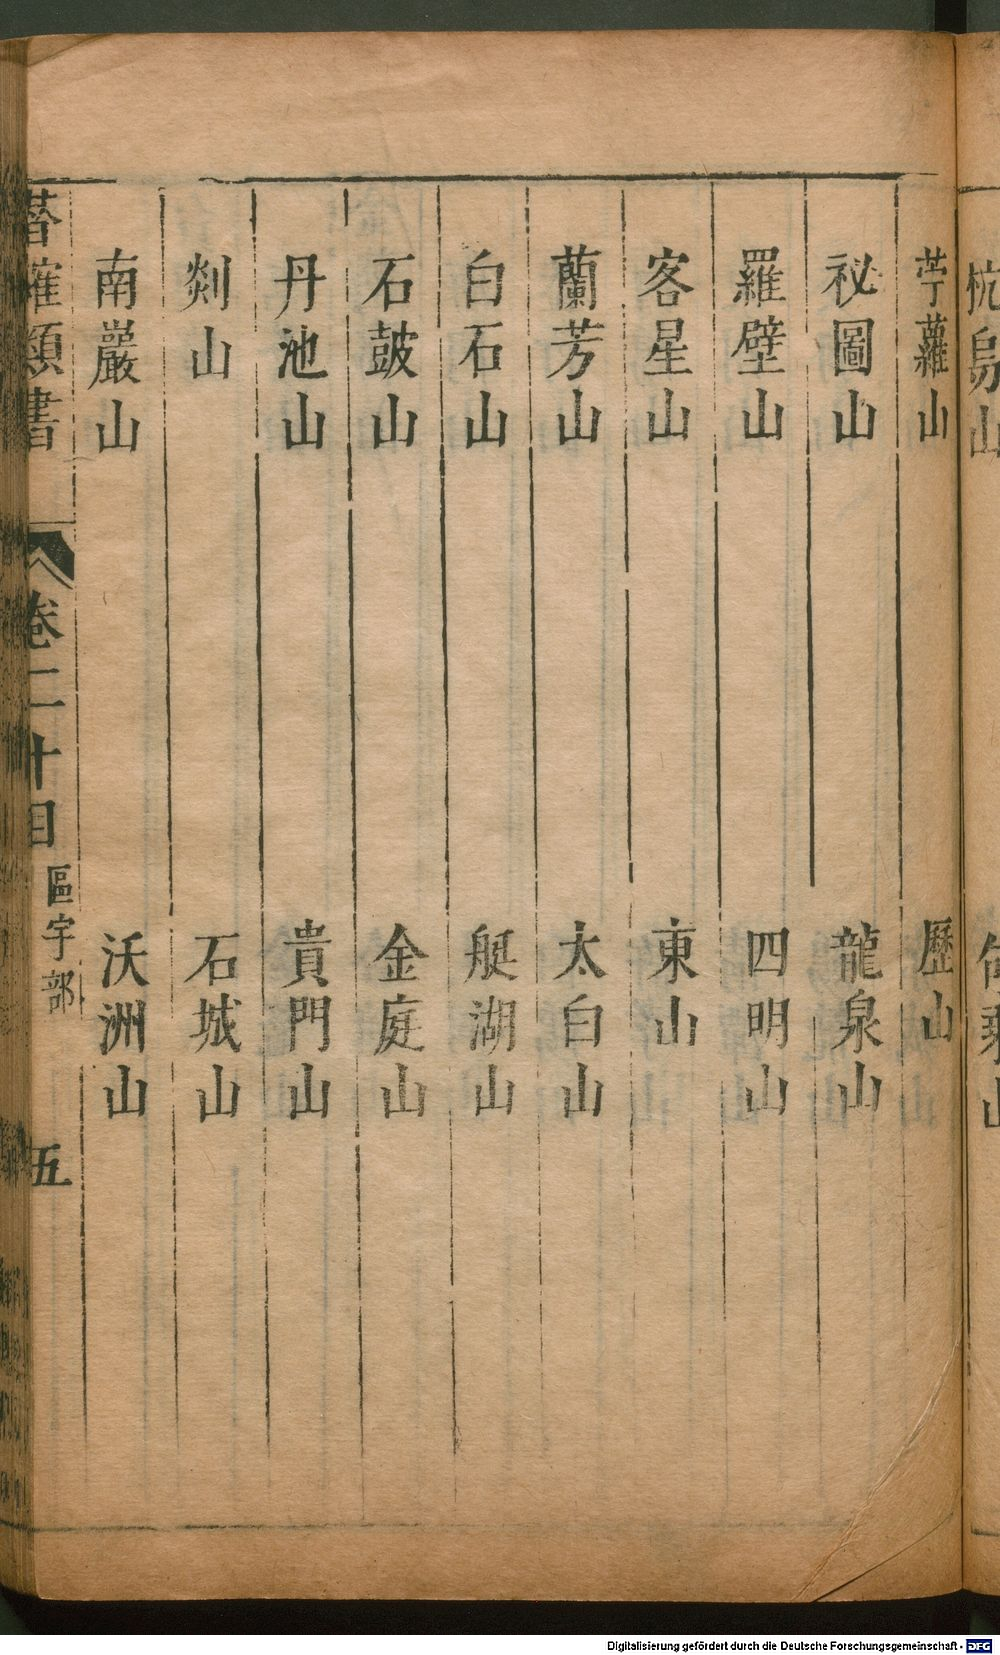 杭烏山
苧蘿山 歷山
祕圖山 龍泉山
羅壁山 四明山
客星山 東山
蘭芳山 太白山
白石山 艇湖山
石鼓山 金庭山
丹池山 貴門山
剡山 石城山
南巖山 沃洲山
潛確類書 卷二十目 區宇部 五
Digitalisierung gefördert durch die Deutsche Forschungsgemeinschaft - DFG